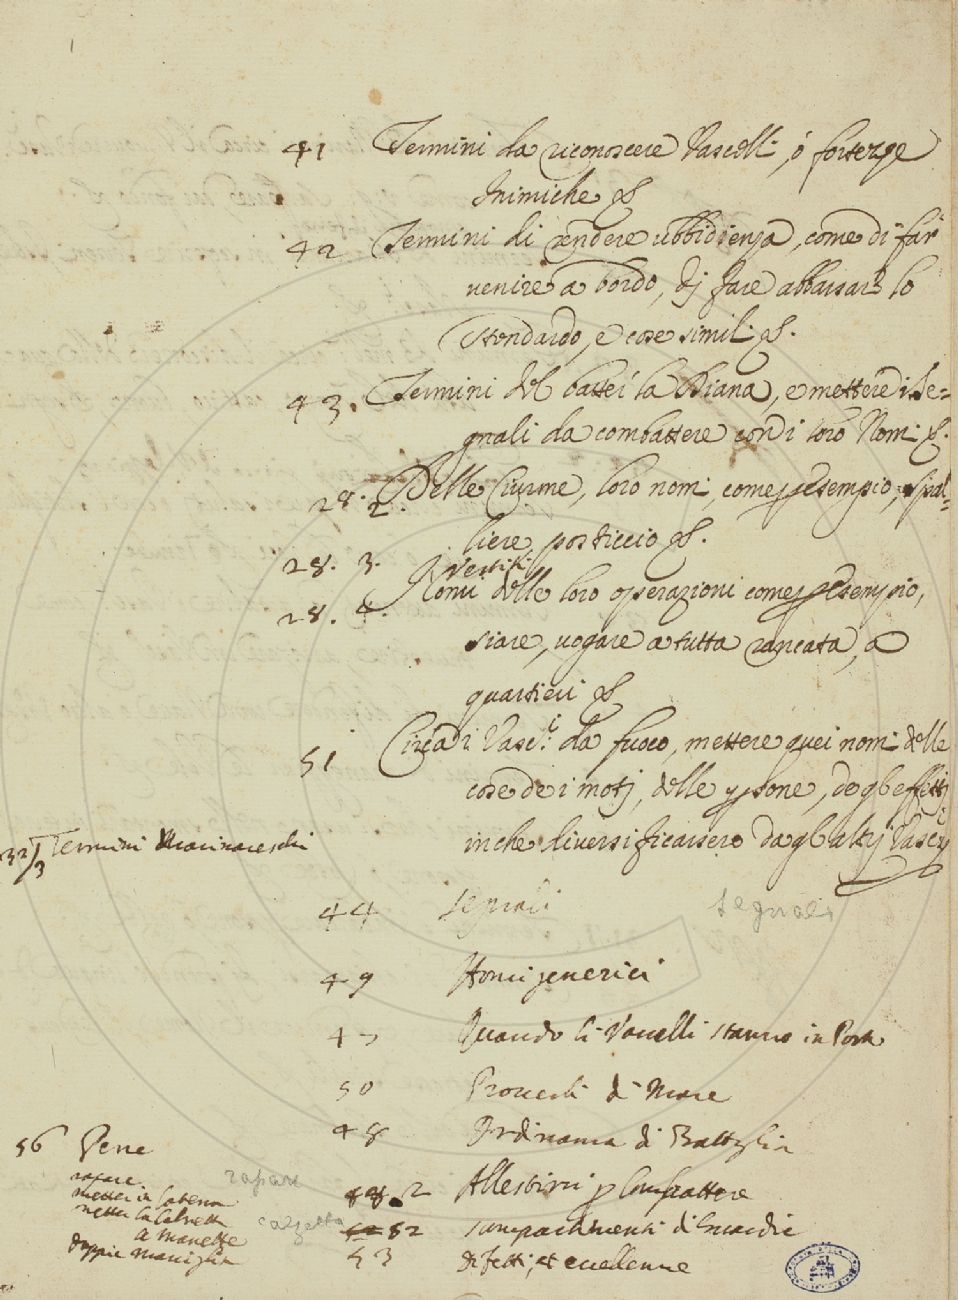 41 Termini da riconoscere Vascelli, ó fortezze
Inimiche &.
42 Termini di rendere ubbidienza, come di far
venire a bordo, di fare abbassare lo
stendardo, e cose simili &.
43. Termini del batter la Diana, e mettere i Se=
gnali da combattere con i loro Nomi &.
28. 2. Delle Ciurme, loro nomi, come p esempio, spal=
liere, posticcio &.
28. 3. Vestiti
28. 4. Nomi delle loro operazioni come p esempio,
siare, vogare a tutta rancata, a
quartieri &
51 Circa i Vasc.i da fuoco, mettere quei nomi delle
cose de i moti, delle psone, degl effetti
in che diversificassero dagl altri Vasc.i
32/3 Termini Marinareschi
44 Segnali segnali
49 Nomi generici
47 Quando li Vascelli stanno in Porto
50 Proverbi di Mare
48 Ordinanza di Battaglia
56 Pene
rapare rapare
metter in Catena
metter la Calzetta calzetta
a manette
doppia maniglia
48.2 Allestirsi p Combattere
52 scompartimenti di Guardie
53 difetti, et eccellenze